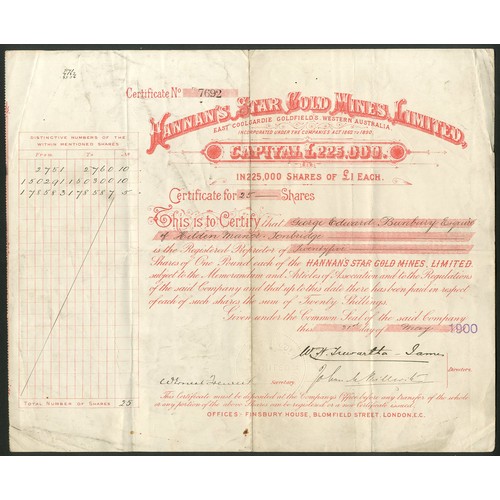 Certificate No 7692
HANNAN'S STAR GOLD MINES, LIMITED,
EAST COOLGARDIE GOLDFIELDS, WESTERN AUSTRALIA.
INCORPORATED UNDER THE COMPANIES ACT 1862 TO 1890.
CAPITAL £225,000.
IN 225,000 SHARES OF £1 EACH.
Certificate for 25 Shares
This is to Certify that George Edward Bunbury Esquire
of Hilden Manor Tonbridge
is the Registered Proprietor of Twentyfive
Shares of One Pound each of the HANNAN'S STAR GOLD MINES, LIMITED.
subject to the Memorandum and Articles of Association and to the Regulations
of the said Company and that up to this date there has been paid in respect
of each of such shares the sum of Twenty Shillings.
Given under the Common Seal of the said Company
this day of May 1900
W. H. Trewartha-James
Directors.
Secretary
This Certificate must be deposited at the Company's Office before any transfer of the whole
or any portion of the shares can be registered or a new Certificate issued.
OFFICES - FINSBURY HOUSE, BLOMFIELD STREET, LONDON, E.C.
DISTINCTIVE NUMBERS OF THE
WITHIN MENTIONED SHARES
From To No
2751 2760 10
150291 150300 10
178583 178587 5
TOTAL NUMBER OF SHARES 25